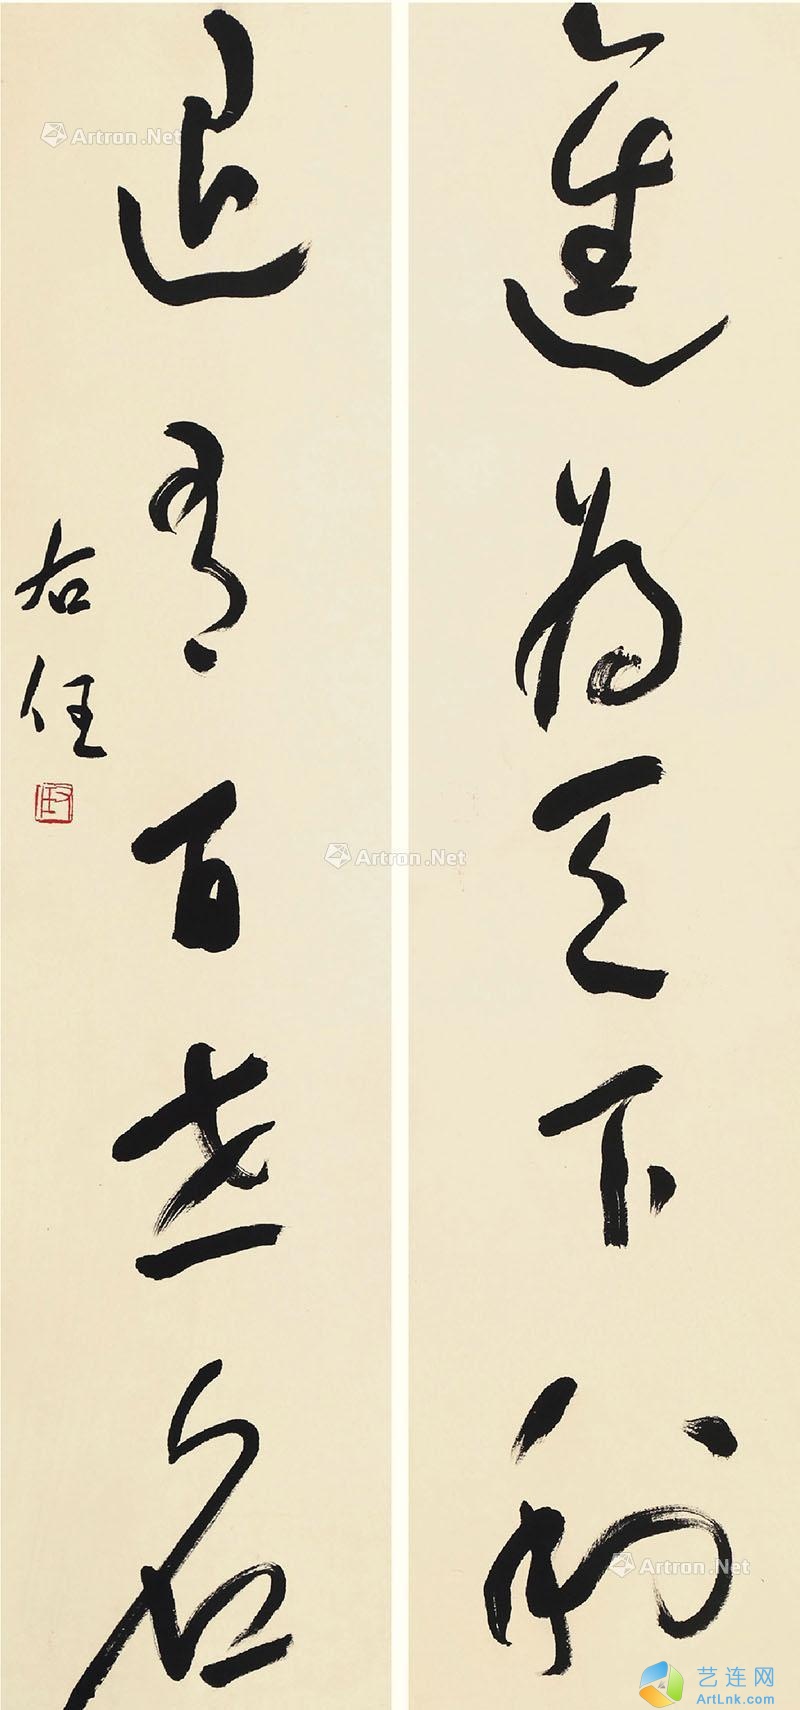 進為天下利
退有百世名
右任
右任
Artron.Net
Artron.Net
Artron.Net
艺连网
ArtLnk.com